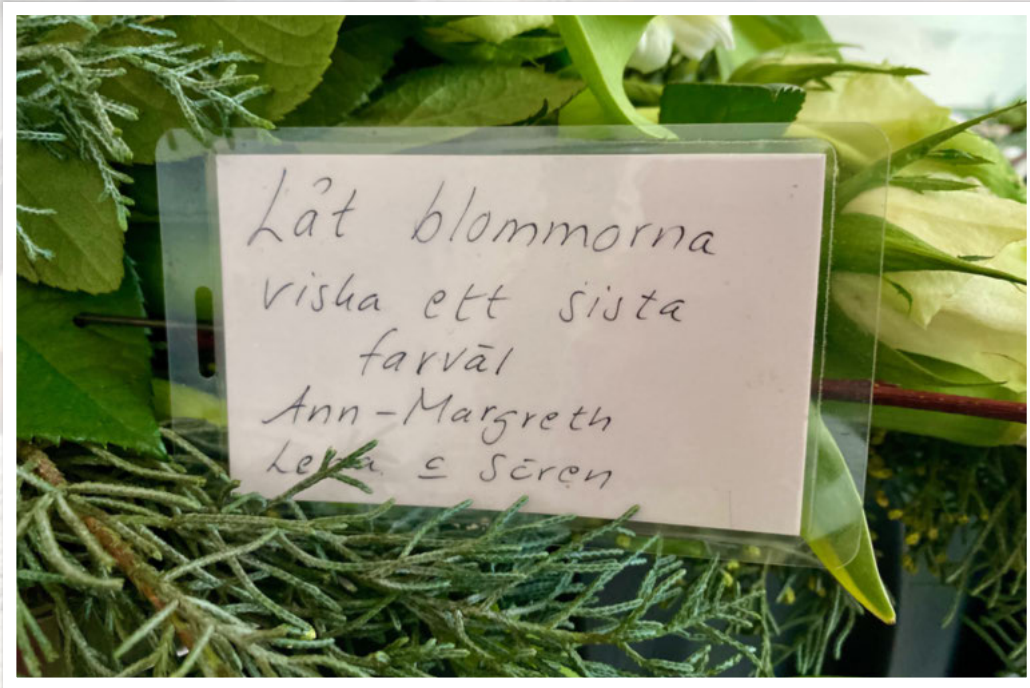 Låt blommorna
viska ett sista
farväl
Ann-Margreth
& Sören